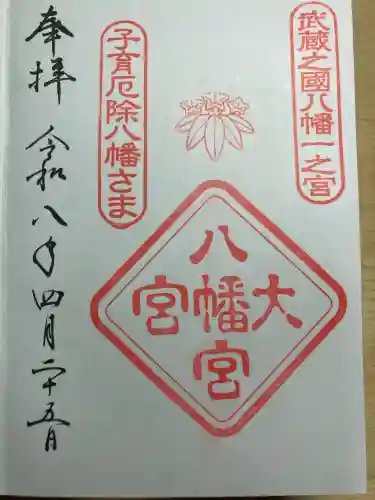 武蔵之國八幡一之宮
八幡宮
大宮
子育厄除八幡さま
奉拝
令和八年四月二十五日